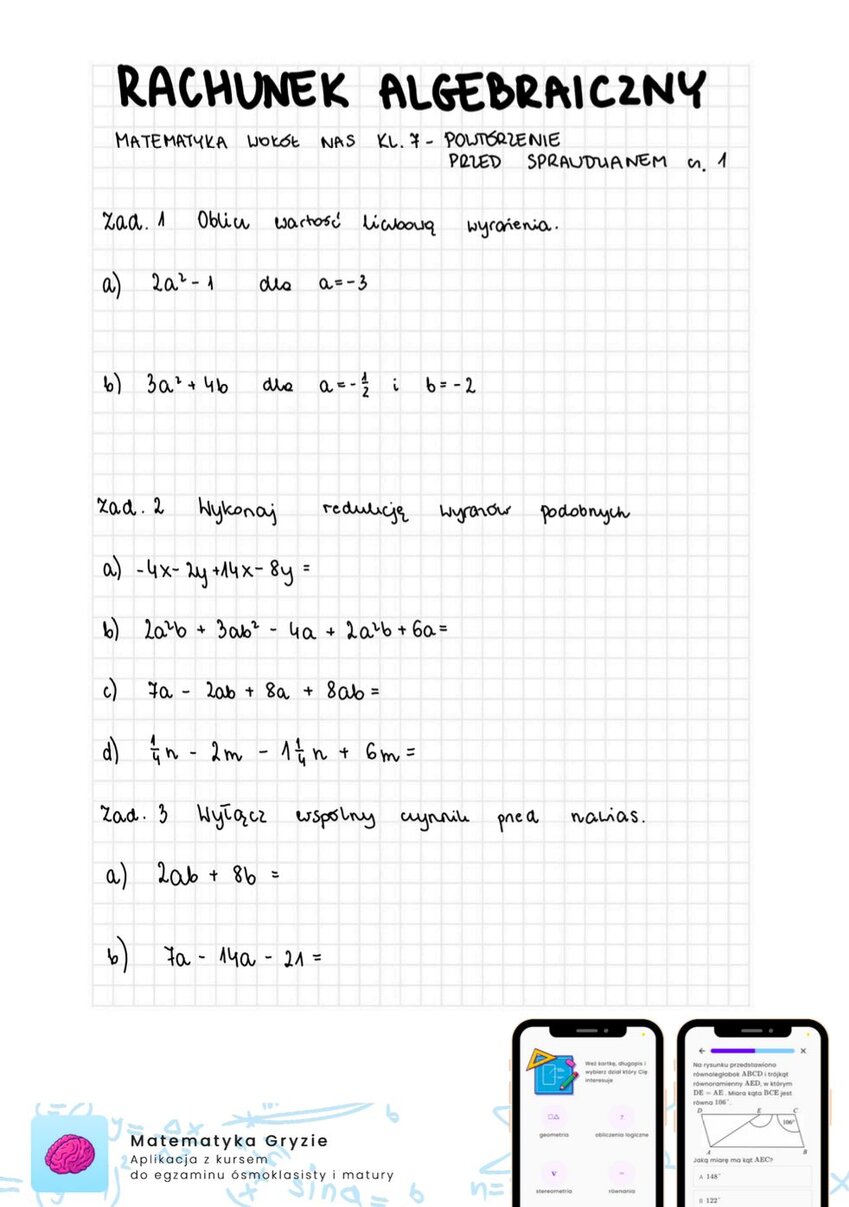 RACHUNEK ALGEBRAICZNY
MATEMATYKA WOKÓŁ NAS KL. 7 - POWTÓRZENIE
PRZED SPRAWDZIANEM cz. 1
Zad. 1 Oblicz wartość liczbową wyrażenia.
a) 2a² - 1 dla a = -3
b) 3a² + 4b dla a = -1/2 i b = -2
Zad. 2 Wykonaj redukcję wyrazów podobnych
a) -4x - 2y + 14x - 8y =
b) 2a²b + 3ab² - 4a + 2a²b + 6a =
c) 7a - 2ab + 8a + 8ab =
d) 1/4 n - 2m - 1 1/4 n + 6m =
Zad. 3 Wyłącz wspólny czynnik przed nawias.
a) 2ab + 8b =
b) 7a - 14a - 21 =
Matematyka Gryzie
Aplikacja z kursem
do egzaminu ósmoklasisty i matury
Weź kartkę, długopis i
wybierz dział który Cię
interesuje
geometria obliczenia logiczne
stereometria równania
Na rysunku przedstawiono
równoległobok ABCD i trójkąt
równoramienny AED, w którym
DE = AE. Miara kąta BCE jest
równa 106°.
D E C
106°
A B
Jaką miarę ma kąt AEC?
A 148°
B 122°